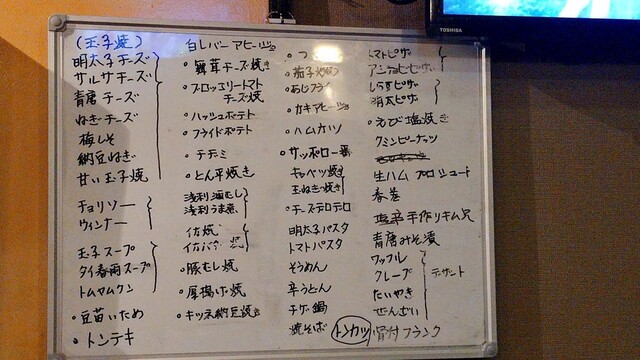 TOSHIBA
(玉子焼)
明太子チーズ
サルサチーズ
青唐チーズ
ねぎチーズ
梅しそ
納豆ねぎ
甘い玉子焼
チョリソー
ウィンナー
玉子スープ
タイ春雨スープ
トムヤムクン
・豆苗いため
・トンテキ
白レバーアヒージョ
・舞茸チーズ焼き
・ブロッコリートマト
チーズ焼
・ハッシュポテト
・フライドポテト
・とん平焼き
浅利酒むし
浅利うま煮
・豚むし焼
・厚揚げ焼
・キツネ納豆焼き
・あじフライ
・カキアヒージョ
・ハムカツ
・サッポロ一番
キャベツ焼き
玉ねぎ焼き
・チーズテロテロ
明太子パスタ
トマトパスタ
そうめん
辛うどん
チゲ鍋
焼そば
トンカツ
トマトピザ
アンチョビピザ
しらすピザ
明太ピザ
・えび塩焼き
クミンピーナッツ
生ハムプロシュート
春巻
塩辛手作りキムチ
青唐みそ漬
ワッフル
クレープ
たいやき
ぜんざい
デザート
骨付フランク